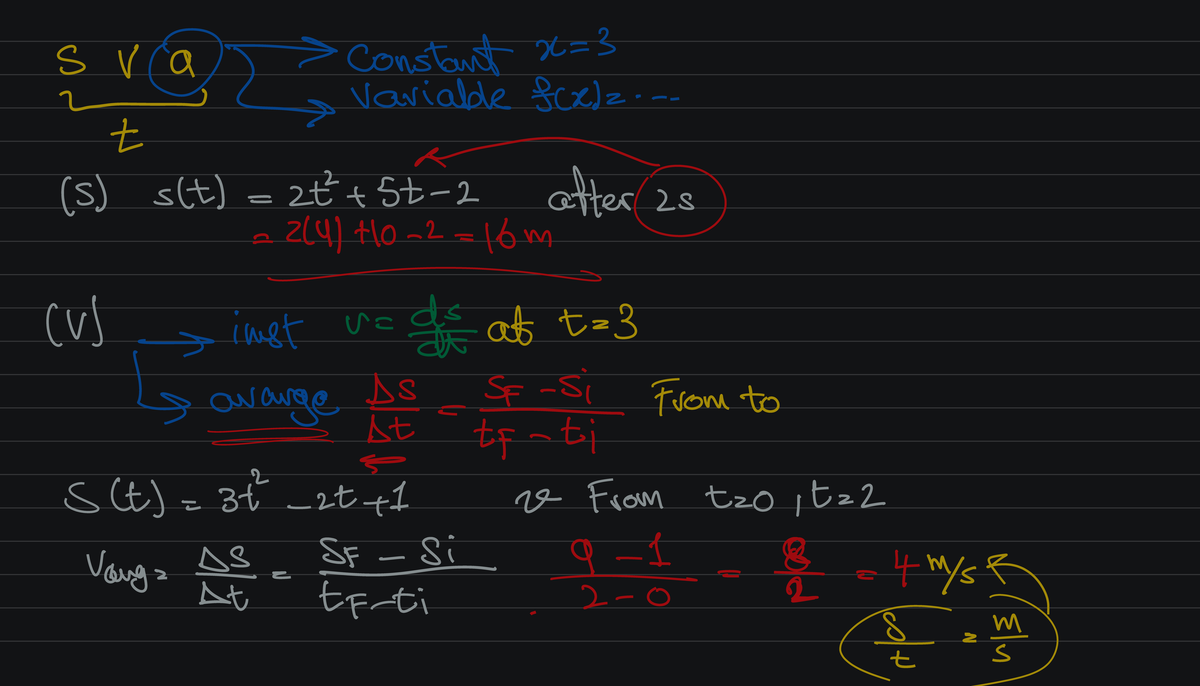 S v a → Constant x=3
→ Variable f(x)=...
t
(S) s(t) = 2t² + 5t - 2 after 2s
= 2(4) +10 - 2 = 16 m
(V) → inst v = ds/dt at t=3
→ avarge Δs/Δt = SF - Si / tF - ti From to
S(t) = 3t² - 2t + 1 v From t=0 , t=2
Vavg = ΔS/Δt = SF - Si / tF - ti 9 - 1 / 2 - 0 = 8/2 = 4 m/s
S/t = m/s